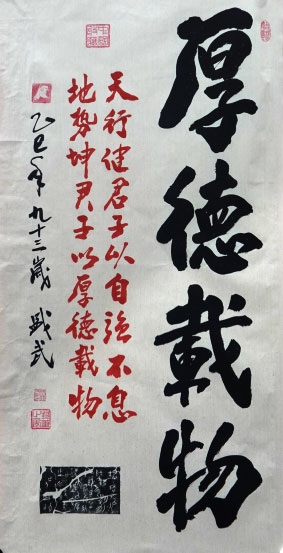 厚德載物
天行健君子以自強不息
地势坤君子以厚德載物
乙巳年九十三歲 武